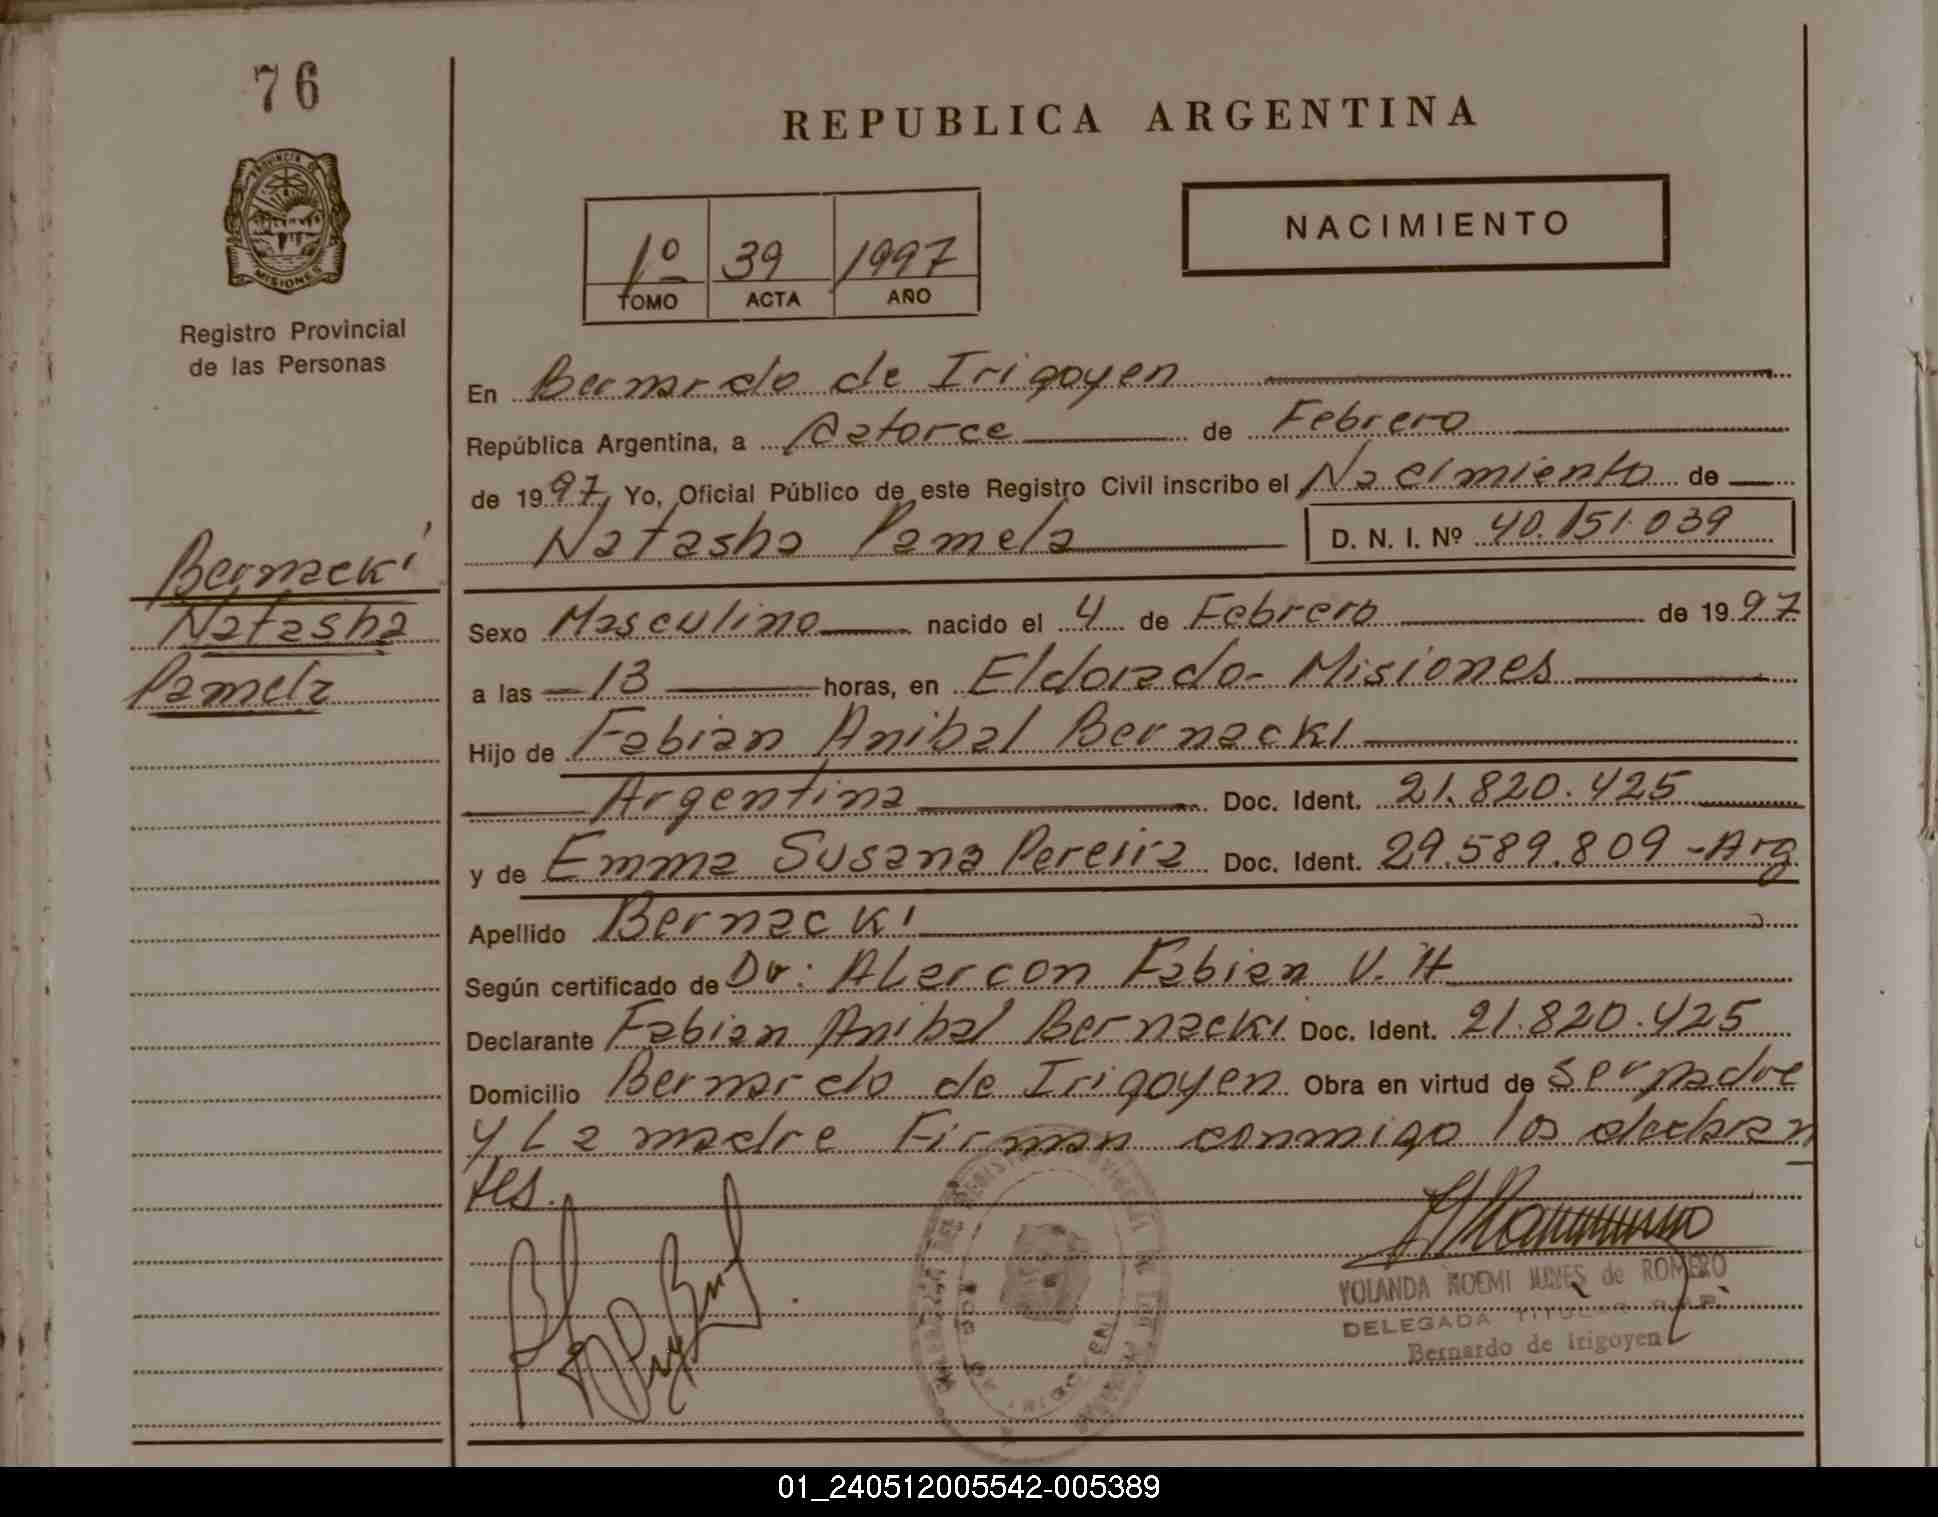 76
REPUBLICA ARGENTINA
PROVINCIA DE
MISIONES
Registro Provincial
de las Personas
1º 39 1997
TOMO ACTA AÑO
NACIMIENTO
En Bernardo de Irigoyen
República Argentina, a Catorce de Febrero
de 1997, Yo, Oficial Público de este Registro Civil inscribo el Nacimiento de
Natasha Pamela D. N. I. Nº 40.151.039
Bernacki
Natasha
Pamela
Sexo Masculino nacido el 4 de Febrero de 1997
a las 13 horas, en Eldorado- Misiones
Hijo de Fabian Anibal Bernacki
Argentina Doc. Ident. 21.820.425
y de Emma Susana Pereira Doc. Ident. 29.589.809 -Arg
Apellido Bernacki
Según certificado de Dr: ALarcon Fabian V. H
Declarante Fabian Anibal Bernacki Doc. Ident. 21.820.425
Domicilio Bernardo de Irigoyen Obra en virtud de ser padre
y La madre Firman conmigo los declaran
tes.
YOLANDA NOEMI de ROMERO
DELEGADA TITULAR
Bernardo de Irigoyen
01_240512005542-005389